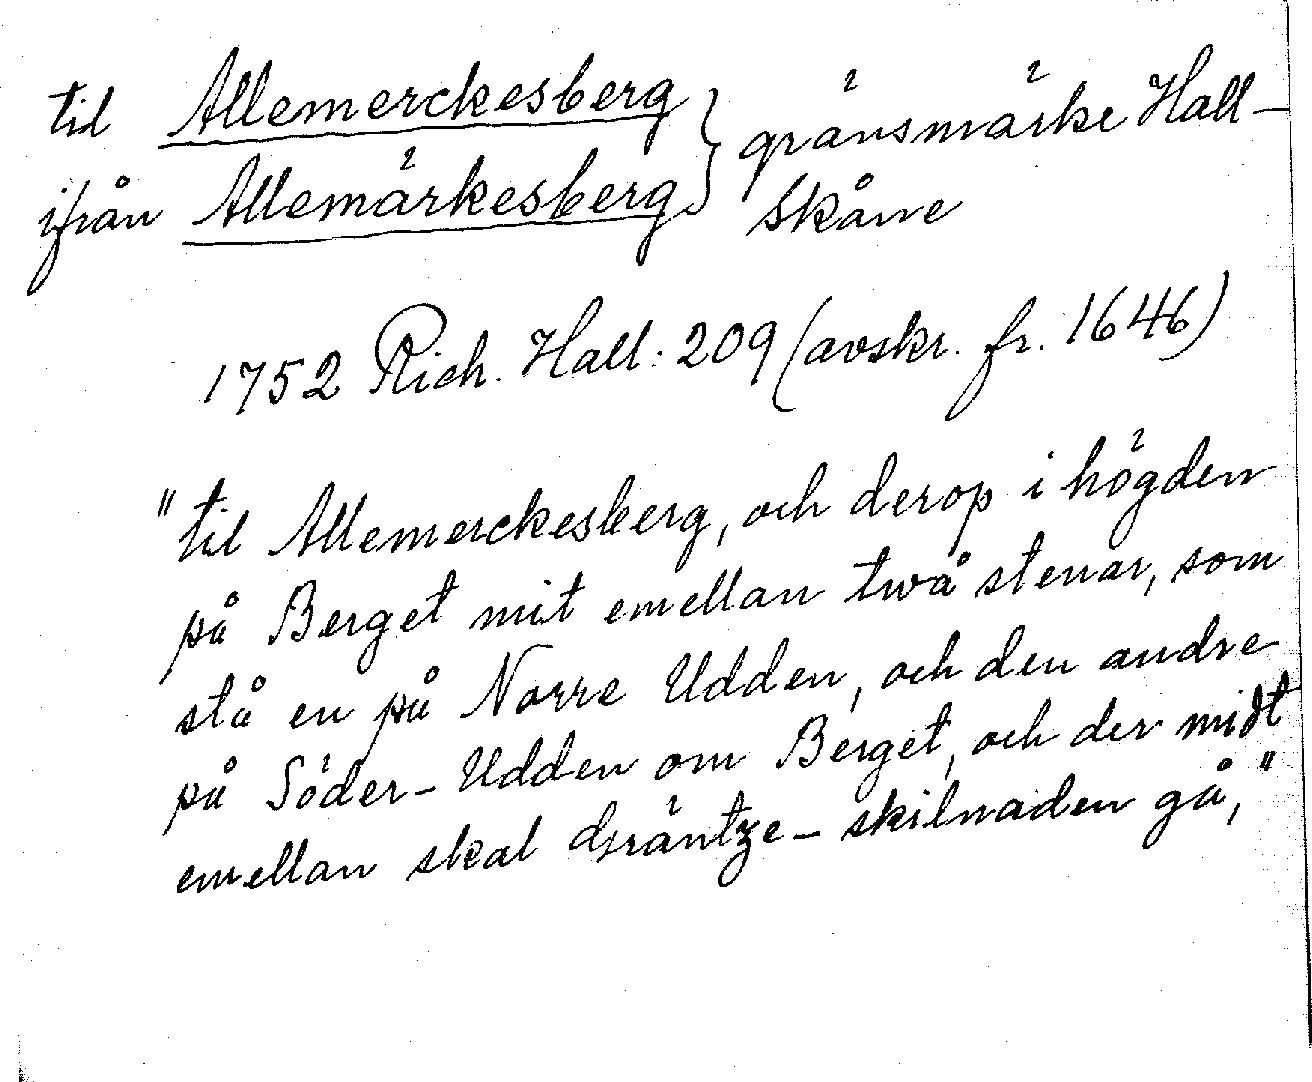 til Allemerckesberg } gränsmärke Hall-
ifrån Allemärkesberg } Skåne
1752 Rich. Hall: 209 (avskr. fr. 1646)
"til Allemerckesberg, och derop i högden
på Berget mit emellan twå stenar, som
stå en på Norre Udden, och den andre
på Söder-Udden om Berget, och der midt
emellan skal Gräntze-skilnaden gå,"